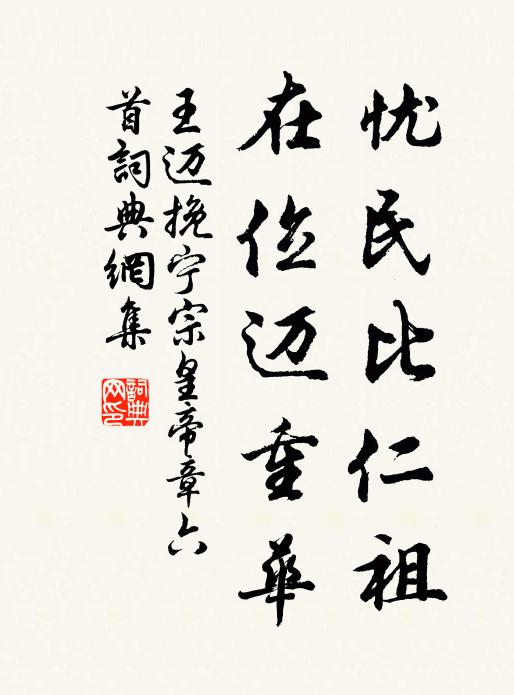 忧民比仁祖
在位迈重华
王迈挽宁宗皇帝章六
首詞典網集
詞典
网印